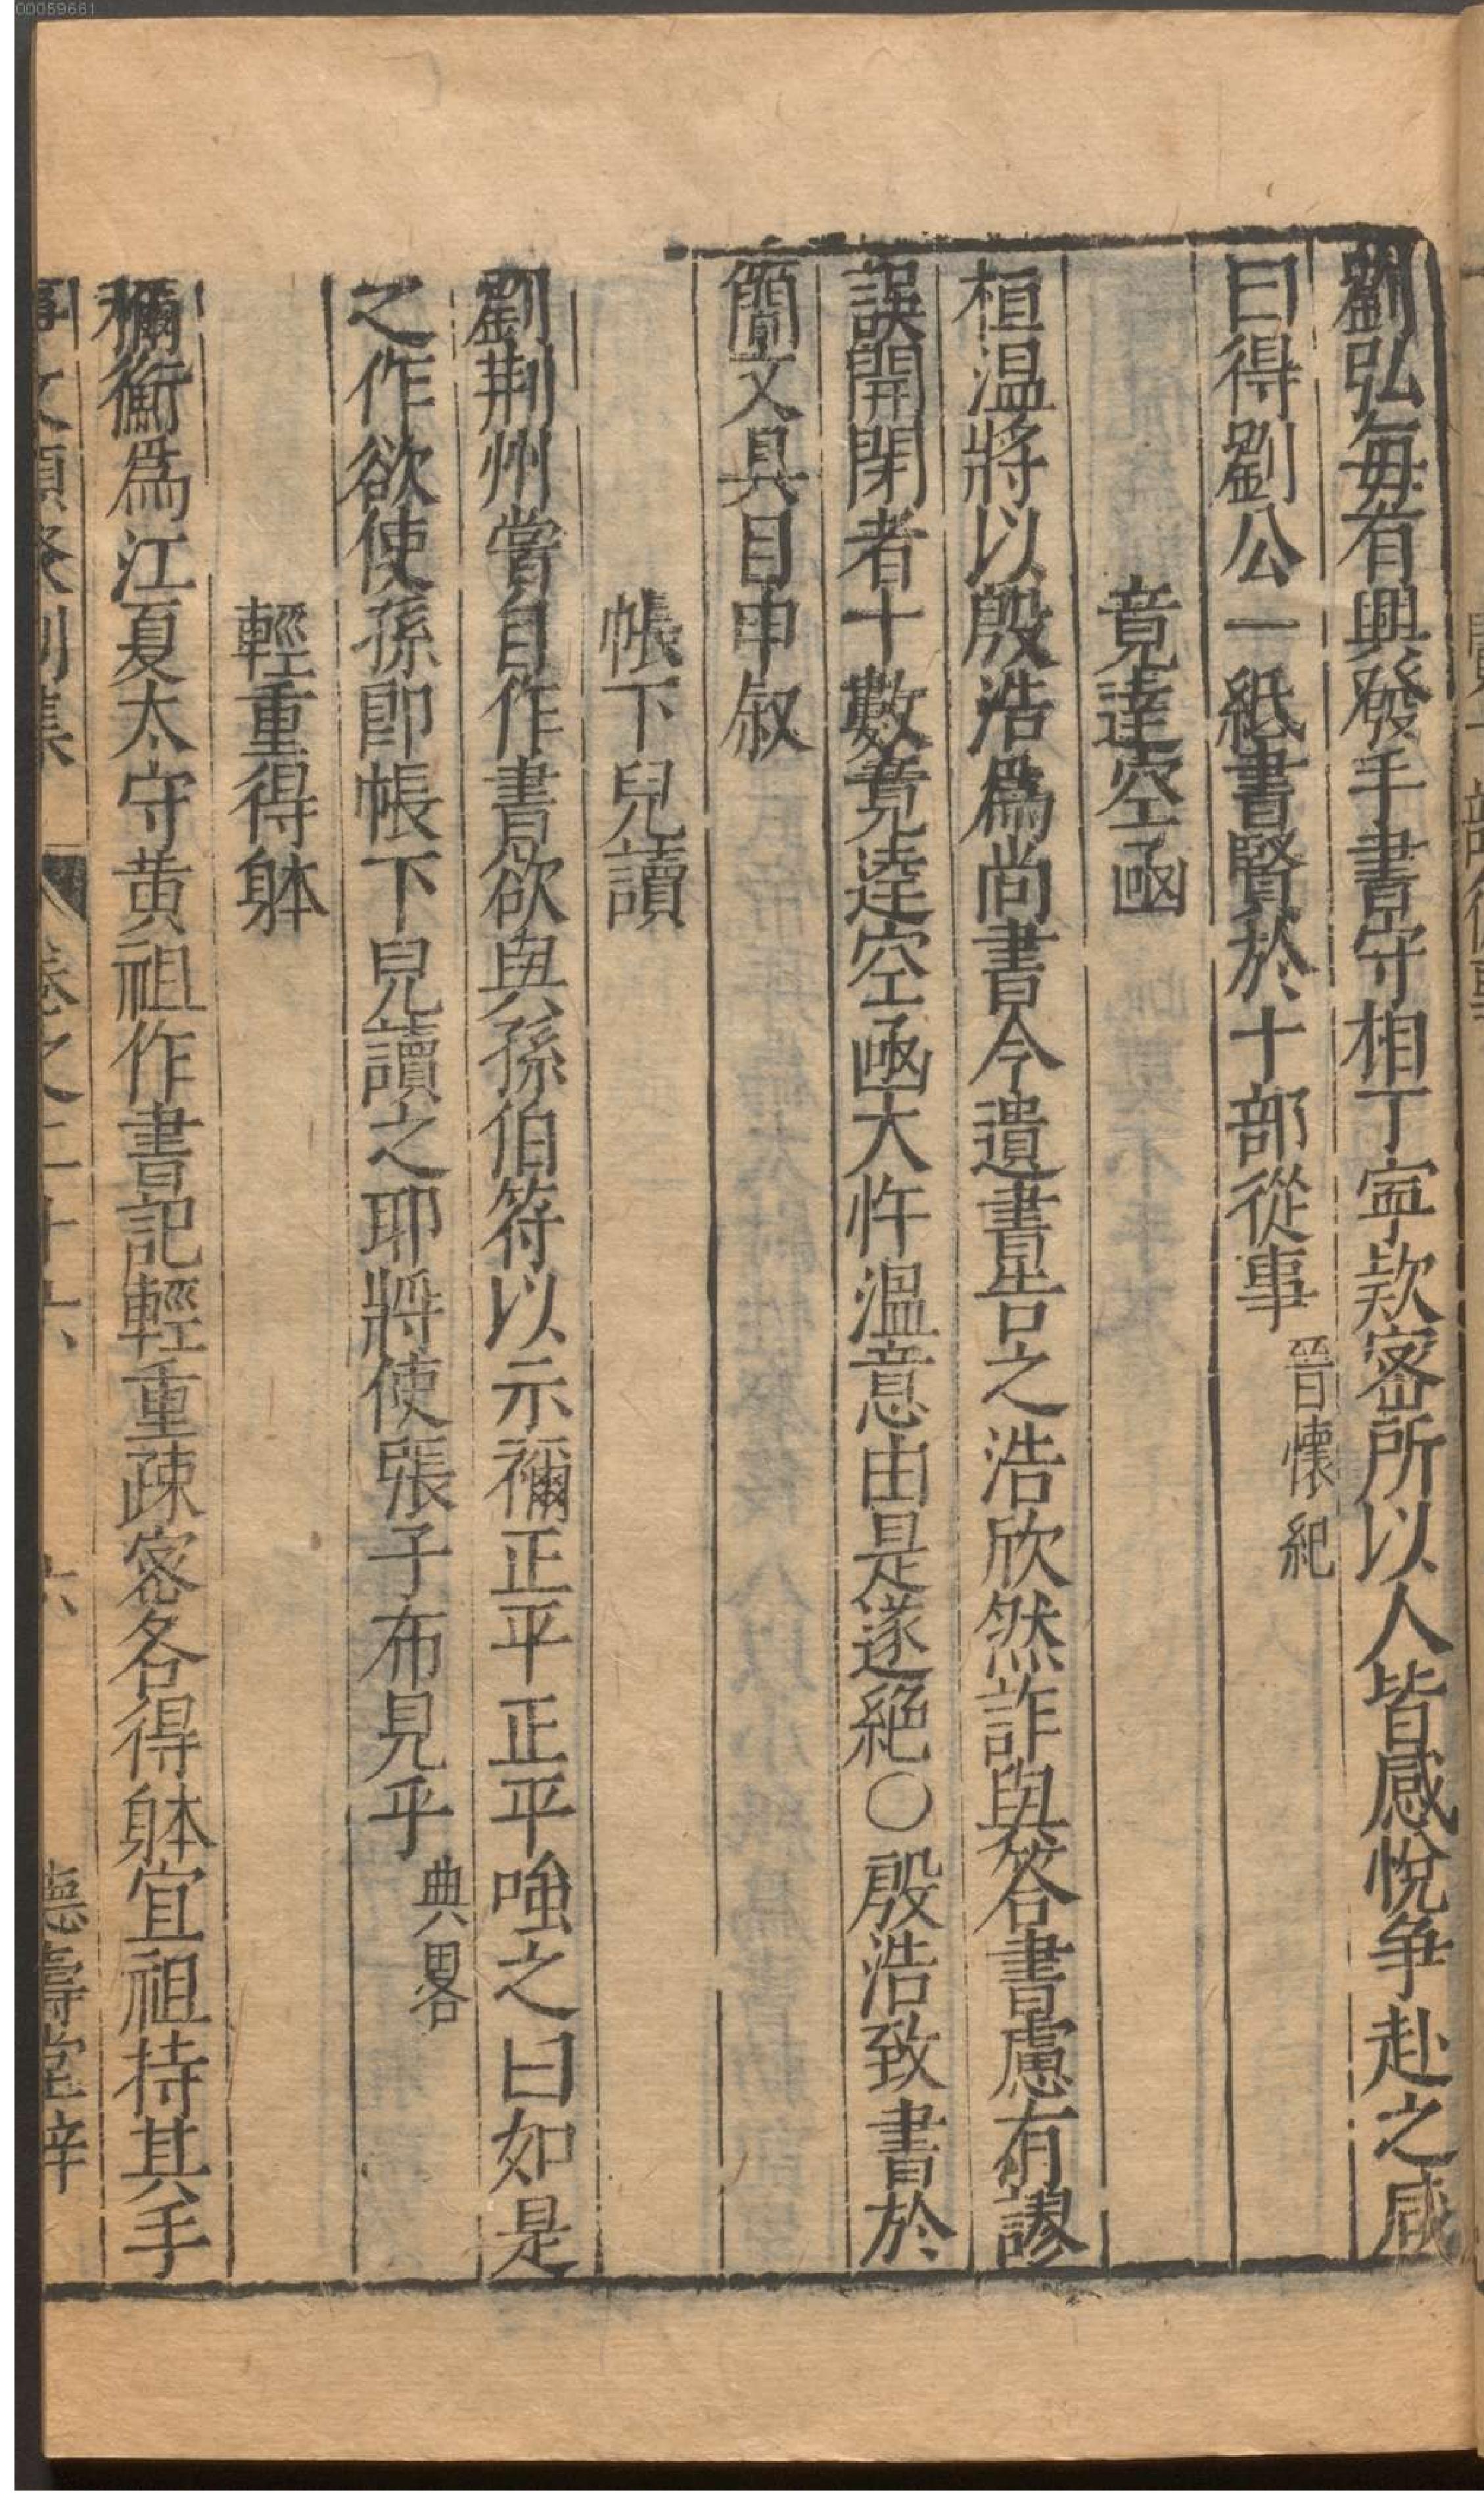 00059661
劉弘每有興發手書守相丁寧欵密所以人皆感悅爭赴之咸
曰得劉公一紙書賢於十部從事 晉懷紀
竟達空凾
桓温將以殷浩爲尚書令遺書告之浩欣然詐與答書慮有謬
誤開閉者十數竟逹空凾大忤溫意由是遂絕○殷浩致書於
簡文具自申叙
帳下兒讀
劉荆州嘗自作書欲與孫伯符以示禰正平正平嗤之曰如是
之作欲使孫郎帳下兒讀之耶將使張子布見乎 典畧
輕重得躰
禰衡爲江夏太守黄祖作書記輕重疎密各得躰宜祖持其手
事文類聚別集 卷之二十六 六 德壽堂梓